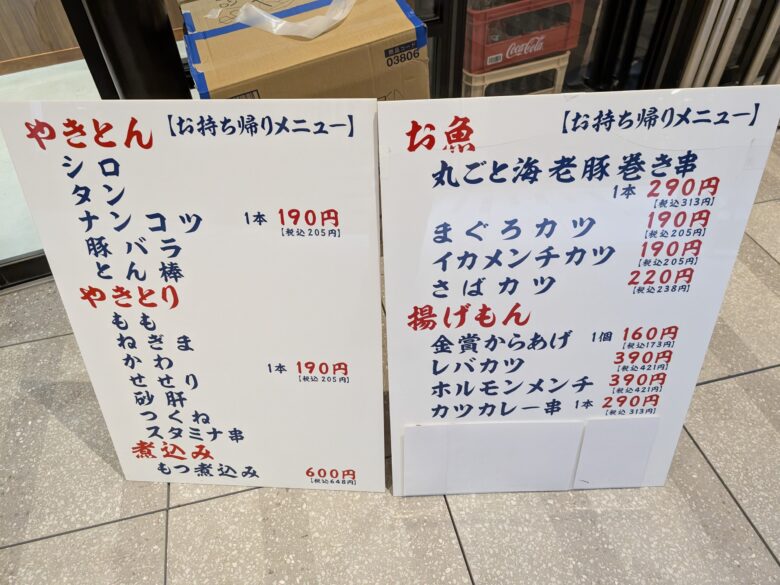 商品コード
03806
Coca-Cola
やきとん 【お持ち帰りメニュー】
シロ
タン
ナンコツ 1本 190円
[税込205円]
豚バラ
とん棒
やきとり
もも
ねぎま
かわ 1本 190円
[税込205円]
せせり
砂肝
つくね
スタミナ串
煮込み
もつ煮込み 600円
[税込648円]
お魚 【お持ち帰りメニュー】
丸ごと海老豚巻き串
1本 290円
[税込313円]
まぐろカツ 190円
[税込205円]
イカメンチカツ 190円
[税込205円]
さばカツ 220円
[税込238円]
揚げもん
金賞からあげ 1個 160円
[税込173円]
レバカツ 390円
[税込421円]
ホルモンメンチ 390円
[税込421円]
カツカレー串 1本 290円
[税込313円]